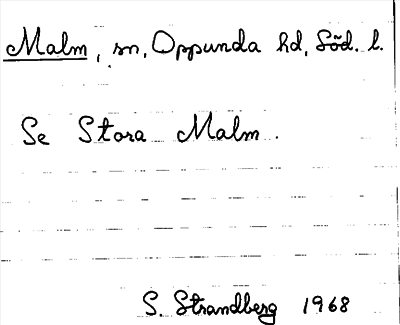 Malm, sn, Oppunda hd, Söd. l.
Se Stora Malm.
S. Strandberg 1968